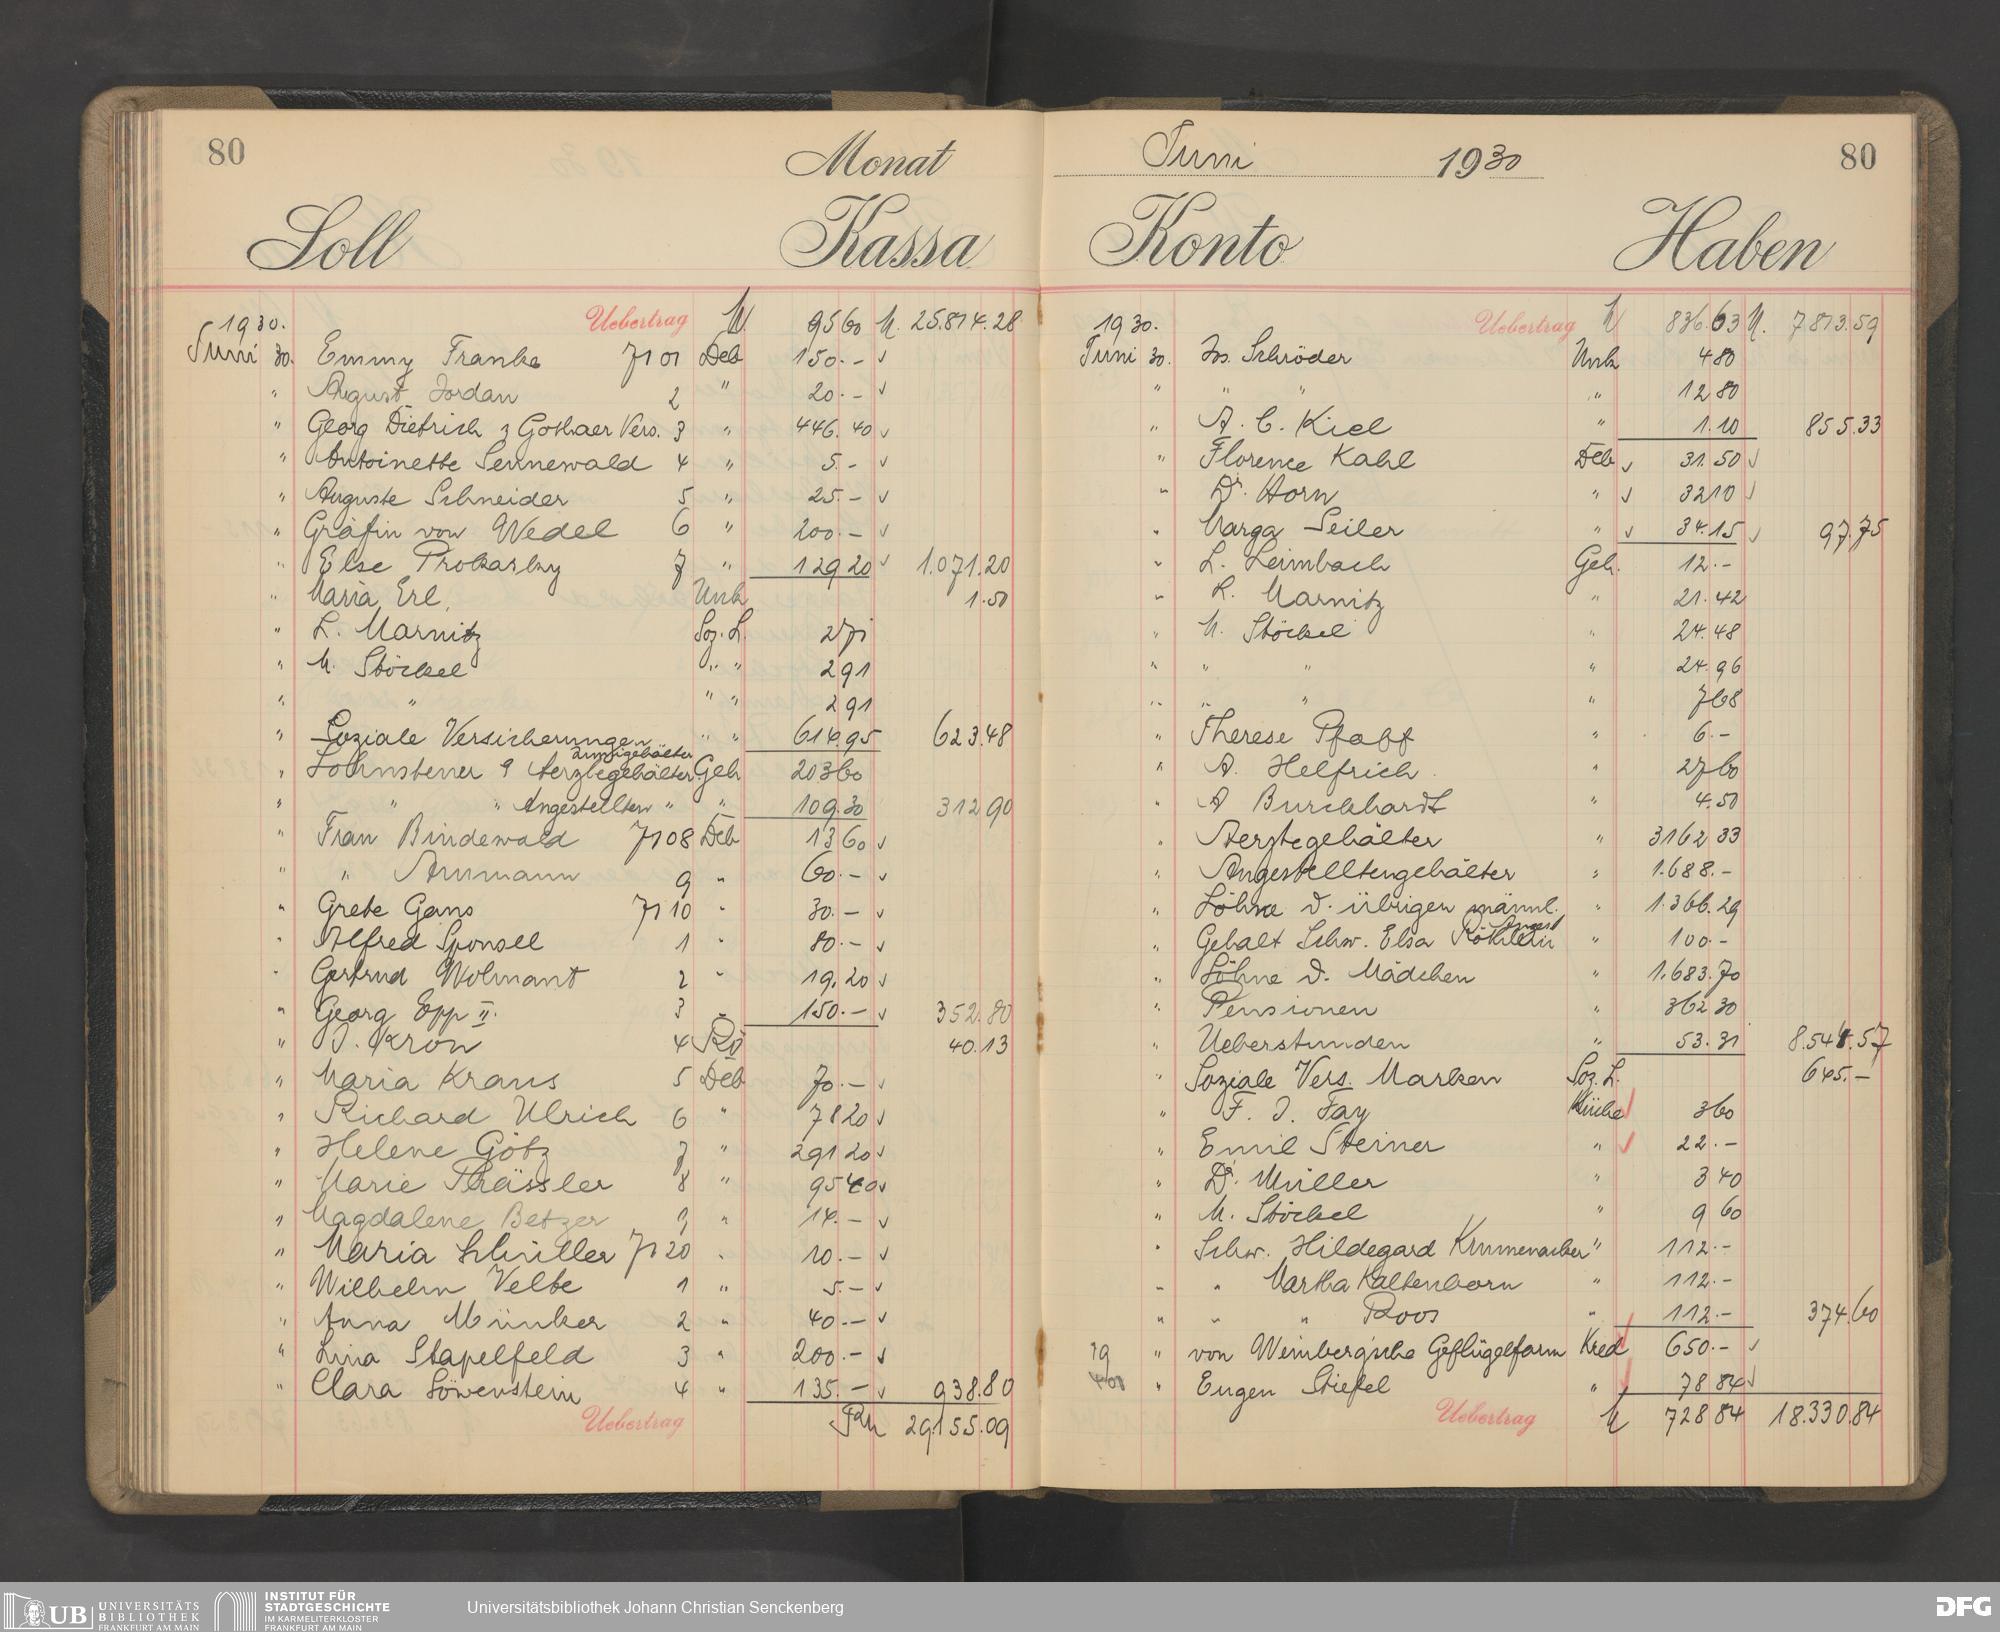 80
Monat
Soll
Kassa
1930. Uebertrag M 95 60 M. 25.814.28
Juni 30. Emmy Franke 7101 Deb 150.-
" August Jordan 2 " 20.-
" Georg Dietrich z Gothaer Vers. 3 " 446.40
" Antoinette Sennewald 4 " 5.-
" Auguste Schneider 5 " 25.-
" Gräfin von Wedel 6 " 200.-
" Else 7 " 129 20 1.071.20
" Maria Erl. Unk 1.50
" L. Marnitz Soz. L. 2 71
" M. Stöckel " " 2 91
" " " " 2 91
" Soziale Versicherungen " " 614.95 623.48
" Lohnsteuer Aerztegehälter Geh 203 60
" " " Angestellten " " 109.30 312 90
" Frau Bindewald 7108 Deb 13 60
" " Ammann 9 " 60.-
" Grete Gans 7110 " 30.-
" Alfred Sponsel 1 " 80.-
" Gertrud Wolmant 2 " 19.20
" Georg Epp II. 3 " 150.- 352.80
" J. Kron 4 Rö 40.13
" Maria Kraus 5 Deb 70.-
" Richard Ulrich 6 " 78 20
" Helene Götz 7 " 291 20
" Marie Prässler 8 " 95 40
" Magdalene Betzer 9 " 14.-
" Maria Schüller 7120 " 10.-
" Wilhelm Velte 1 " 5.-
" Anna Münker 2 " 40.-
" Lina Stapelfeld 3 " 200.-
" Clara Löwenstein 4 " 135.- 938.80
Uebertrag RM 29.155.09
Juni 1930
80
Konto
Haben
1930. Uebertrag M 836.63 M. 7813.59
Juni 30. Jos. Schröder Unk 4 80
" " " " 12 80
" A. C. Kiel " 1.10 855.33
" Florence Kahl Deb 31.50
" Dr. Horn " 32 10
" Marga Seiler " 34.15 97.75
" L. Leimbach Geh. 12.-
" L. Marnitz " 21.42
" M. Stöckel " 24.48
" " " " 24.96
" " " " 7 68
" Therese Pfaff " 6.-
" A. Helfrich " 27 60
" A Burckhardt " 4.50
" Aerztegehälter " 3162 33
" Angestelltengehälter " 1.688.-
" Löhne d. übrigen männl. Angest " 1.366.29
" Gehalt Schw. Elsa " 100.-
" Löhne d. Mädchen " 1.683.70
" Pensionen " 362 30
" Ueberstunden " 53.31 8.544.57
" Soziale Vers. Marken Soz. L. 645.-
" F. J. Fay Küche 3 60
" Emil Steiner " 22.-
" Dr. Müller " 3 40
" M. Stöckel " 9 60
" Schw. Hildegard Krumenacker " 112.-
" " Martha Kaltenborn " 112.-
" " " Roos " 112.- 374.60
" von Weinberg'sche Geflügelfarm Kred 650.-
" Eugen Stiefel " 78 84
Uebertrag M 728 84 18.330.84
UB UNIVERSITÄTS
BIBLIOTHEK
FRANKFURT AM MAIN
INSTITUT FÜR
STADTGESCHICHTE
IM KARMELITERKLOSTER
FRANKFURT AM MAIN
Universitätsbibliothek Johann Christian Senckenberg
DFG